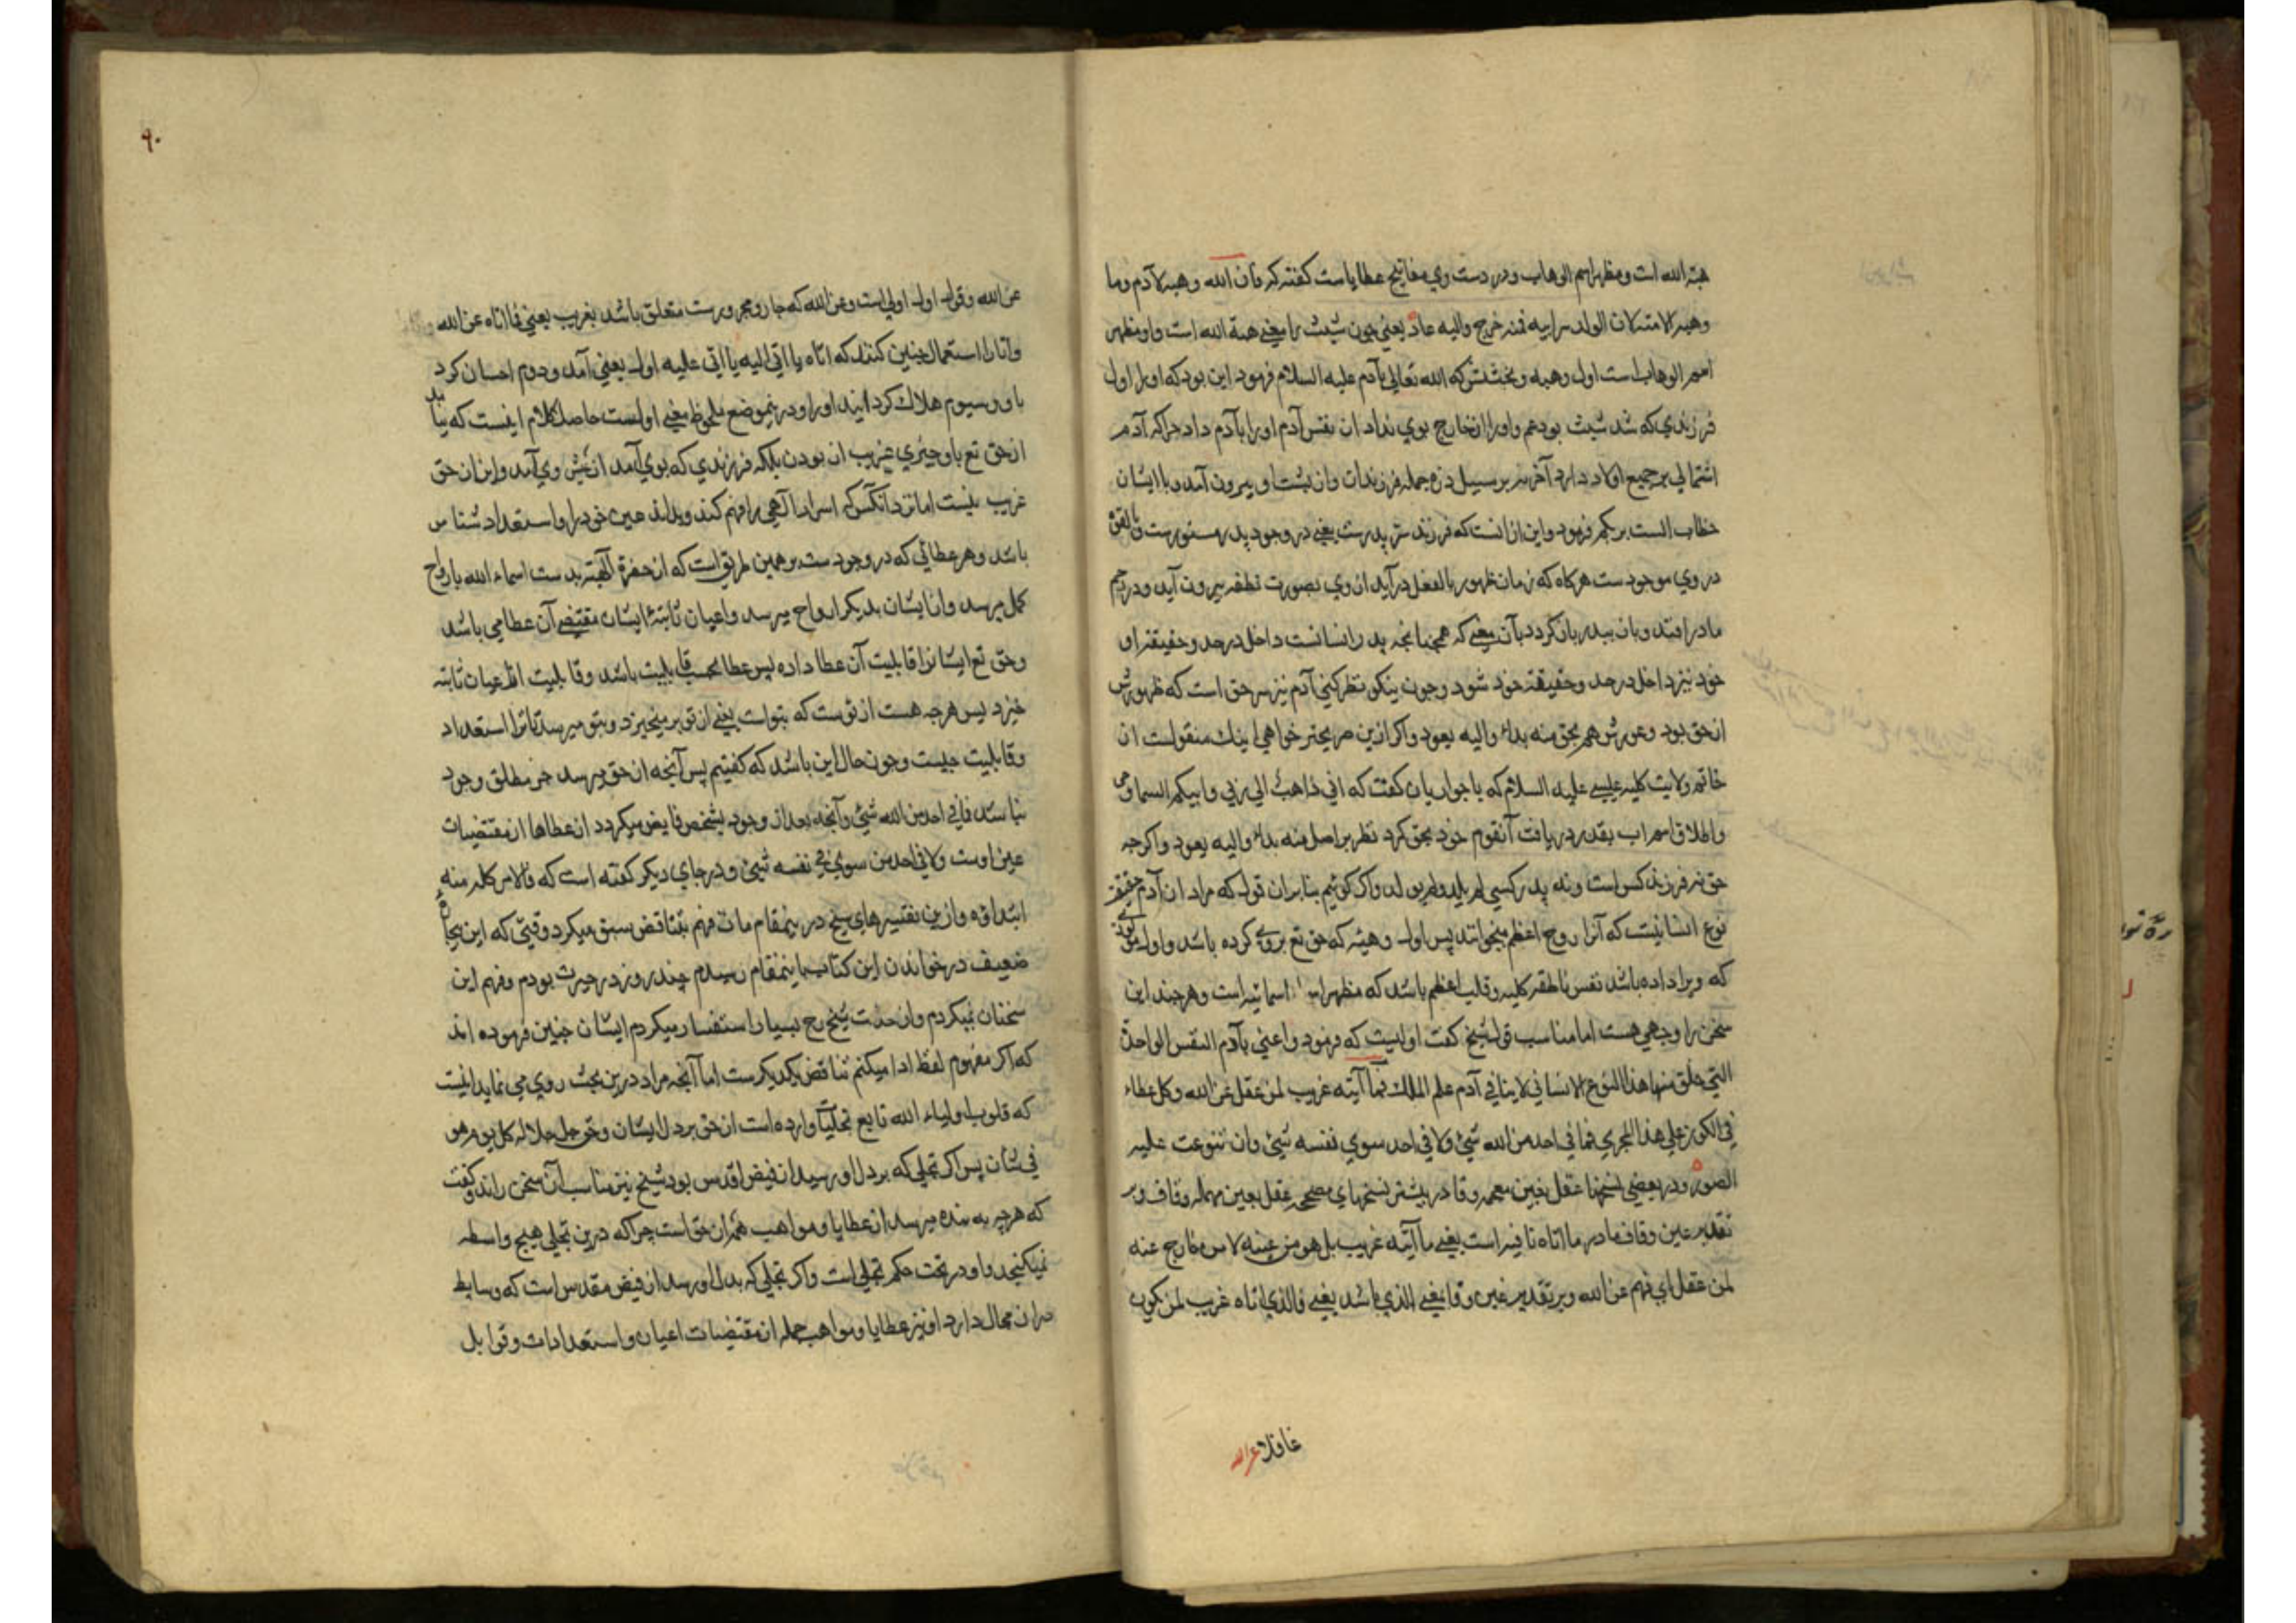 هبة الله است ومظهر اسم الوهاب ودر دست وي مفاتيح عطاياست كفته كه فان الله وهبه لآدم وما
وهبه الا منه لان الولد سرابيه فمنه خرج واليه عاد يعني چون شيث را معني هبة الله است واو مظهر
اسم الوهاب است اول وهبه وبخشش كه الله تعالي بآدم عليه السلام فرمود اين بود كه او را اول
فرزندي كه شد شيث بود هم واورا از خارج بوي نداد از نفس آدم اورا بآدم داد چرا كه آدم
اشتمالي بر جميع اولاد دارد آخر نه بر سبيل ذره جمله فرزندان وان پشت او بيرون آمد وبا ايشان
خطاب الست بربكم فرمود واين از انست كه فرزند سر پدرست يعني در وجود پدر مستورست وبالقوة
در وي موجودست هركاه كه زمان ظهور بالفعل درآيد از وي بصورت نطفه بيرون آيد ودر رحم
مادر افتد وبان بپدر باز كردد بآن معني كه همچنانچه پدر انسانست داخل در حد وحقيقته او
خود نيز داخل در حد وحقيقة خود شود وچون نيكو نظر كني آدم نيز سر حق است كه ظهورش
از حق بود وعودش هم بحق منه بدا واليه يعود واكر ازين صريحتر خواهي اينك منقولست از
خاتم ولايت كليه عيسي عليه السلام كه با حواريان كفت كه اني ذاهب الي ربي وابيكم السماوي
واطلاق اسم اب بقدر دريافت آنقوم خود بحق كرد نظر بر اصل منه بدا واليه يعود واكرچه
حق نه فرزند كس است ونه پدر كسي لم يلد ولم يولد واكر كوئيم بنابران قول كه مراد از آدم حقيقة
نوع انسانيت كه آنرا روح اعظم ميخوانند پس اول وهبه كه حق تع بروي كرده باشد واول مولودي
كه ويرا داده باشد نفس ناطقه كليه وقلب اعظم باشد كه مظهر اسمائيه است وهر چند اين
سخن را وجهي هست اما مناسب قول شيخ كفت اوليست كه فرمود واعني بآدم النفس الواحدة
التي خلق منها هذا النوع الانساني لا ينافي آدم علم الملك فما آتيه غريب لمن عقل عن الله وكل عطاء
في الكون علي هذا المجري فما في احد من الله شئ ولا في احد سوي نفسه شئ وان تنوعت عليه
الصور ودر بعضي نسخها غفل بغين معجمه وفا در بيشتر نسخهاي مصحح عقل بعين مهمله وقاف وبر
تقدير عين وقاف ما در ما اتاه نافيه است يعني ما آتيه غريب بل هو من عينه لا من خارج عنه
لمن عقل اي فهم عن الله وبر تقدير غين وفا بمعني الذي باشد يعني فالذي اتاه غريب لمن يكون
غافلا عن الله
٩٠
عن الله وقول اول اولي است وعن الله كه جار ومجرورست متعلق باشد بغريب يعني فما اتاه عن الله
واتا را استعمال چنين كنند كه اتاه يا اتي اليه يا اتي عليه اول يعني آمد ودوم احسان كرد
با او وسيوم هلاك كردانيد اورا ودرينموضع ملحوظ معني اولست حاصل كلام اينست كه نيايد
از حق تع باو چيزي غريب از بودن بلكه فرزندي كه بوي آمد از عينش وي آمد واين از حق
غريب نيست اما نزد آنكس كه اسرار آلهي را فهم كند وبداند عين خود را واستعداد شناس
باشد وهر عطائي كه در وجودست بر همين طريق است كه از حضرة آلهيته بدست اسماء الله بارواح
كمل ميرسد واز ايشان بديكر ارواح ميرسد واعيان ثابتهٔ ايشان مقتضي آن عطا مي باشد
وحق تع ايشانرا قابليت آن عطا داده پس عطا بحسب قابليت باشد وقابليت از اعيان ثابته
خيزد پس هرچه هست از توست كه بتو است يعني از تو برميخيزد وبتو ميرسد تا ترا استعداد
وقابليت چيست وچون حال اين باشد كه كفتيم پس آنچه از حق ميرسد جز مطلق وجود
نباشد فما في احد من الله شئ وآنچه بعد از وجود بشخص فايض ميكردد از عطاها از مقتضيات
عين اوست ولا في احد من سوي نفسه شئ ودر جاي ديكر كفته است كه فالامر كله منه
ابتداؤه وازين تفسيرهاي شيخ درينمقام ما فهم بتناقض سبق ميكرد وقتي كه اين
ضعيف در خواندن اين كتاب باينمقام رسيدم چند روز در حيرت بودم وفهم اين
سخنان نميكردم واز حضرت شيخ رح بسيار استفسار ميكردم ايشان چنين فرموده اند
كه اكر مفهوم لفظ ادا ميكنم تناقض يكديكرست اما آنچه مراد درين بحث روي مي نمايد اينست
كه قلوب اولياء الله تابع تجليات وارده است از حق بر دل ايشان وحق جل جلاله كل يوم هو
في شان پس اكر تجلي كه بر دل او رسيد از فيض اقدس بود شيخ نيز مناسب آن سخن راند وكفت
كه هرچه به بنده ميرسد از عطايا ومواهب هم از حق است چرا كه درين تجلي هيچ واسطه
نميكنجد واو در تحت حكم تجلي است واكر تجلي كه بدل او رسد از فيض مقدس است كه وسايط
در ان مجال دارد او نيز عطايا ومواهب جمله از مقتضيات اعيان واستعدادات وقوابل